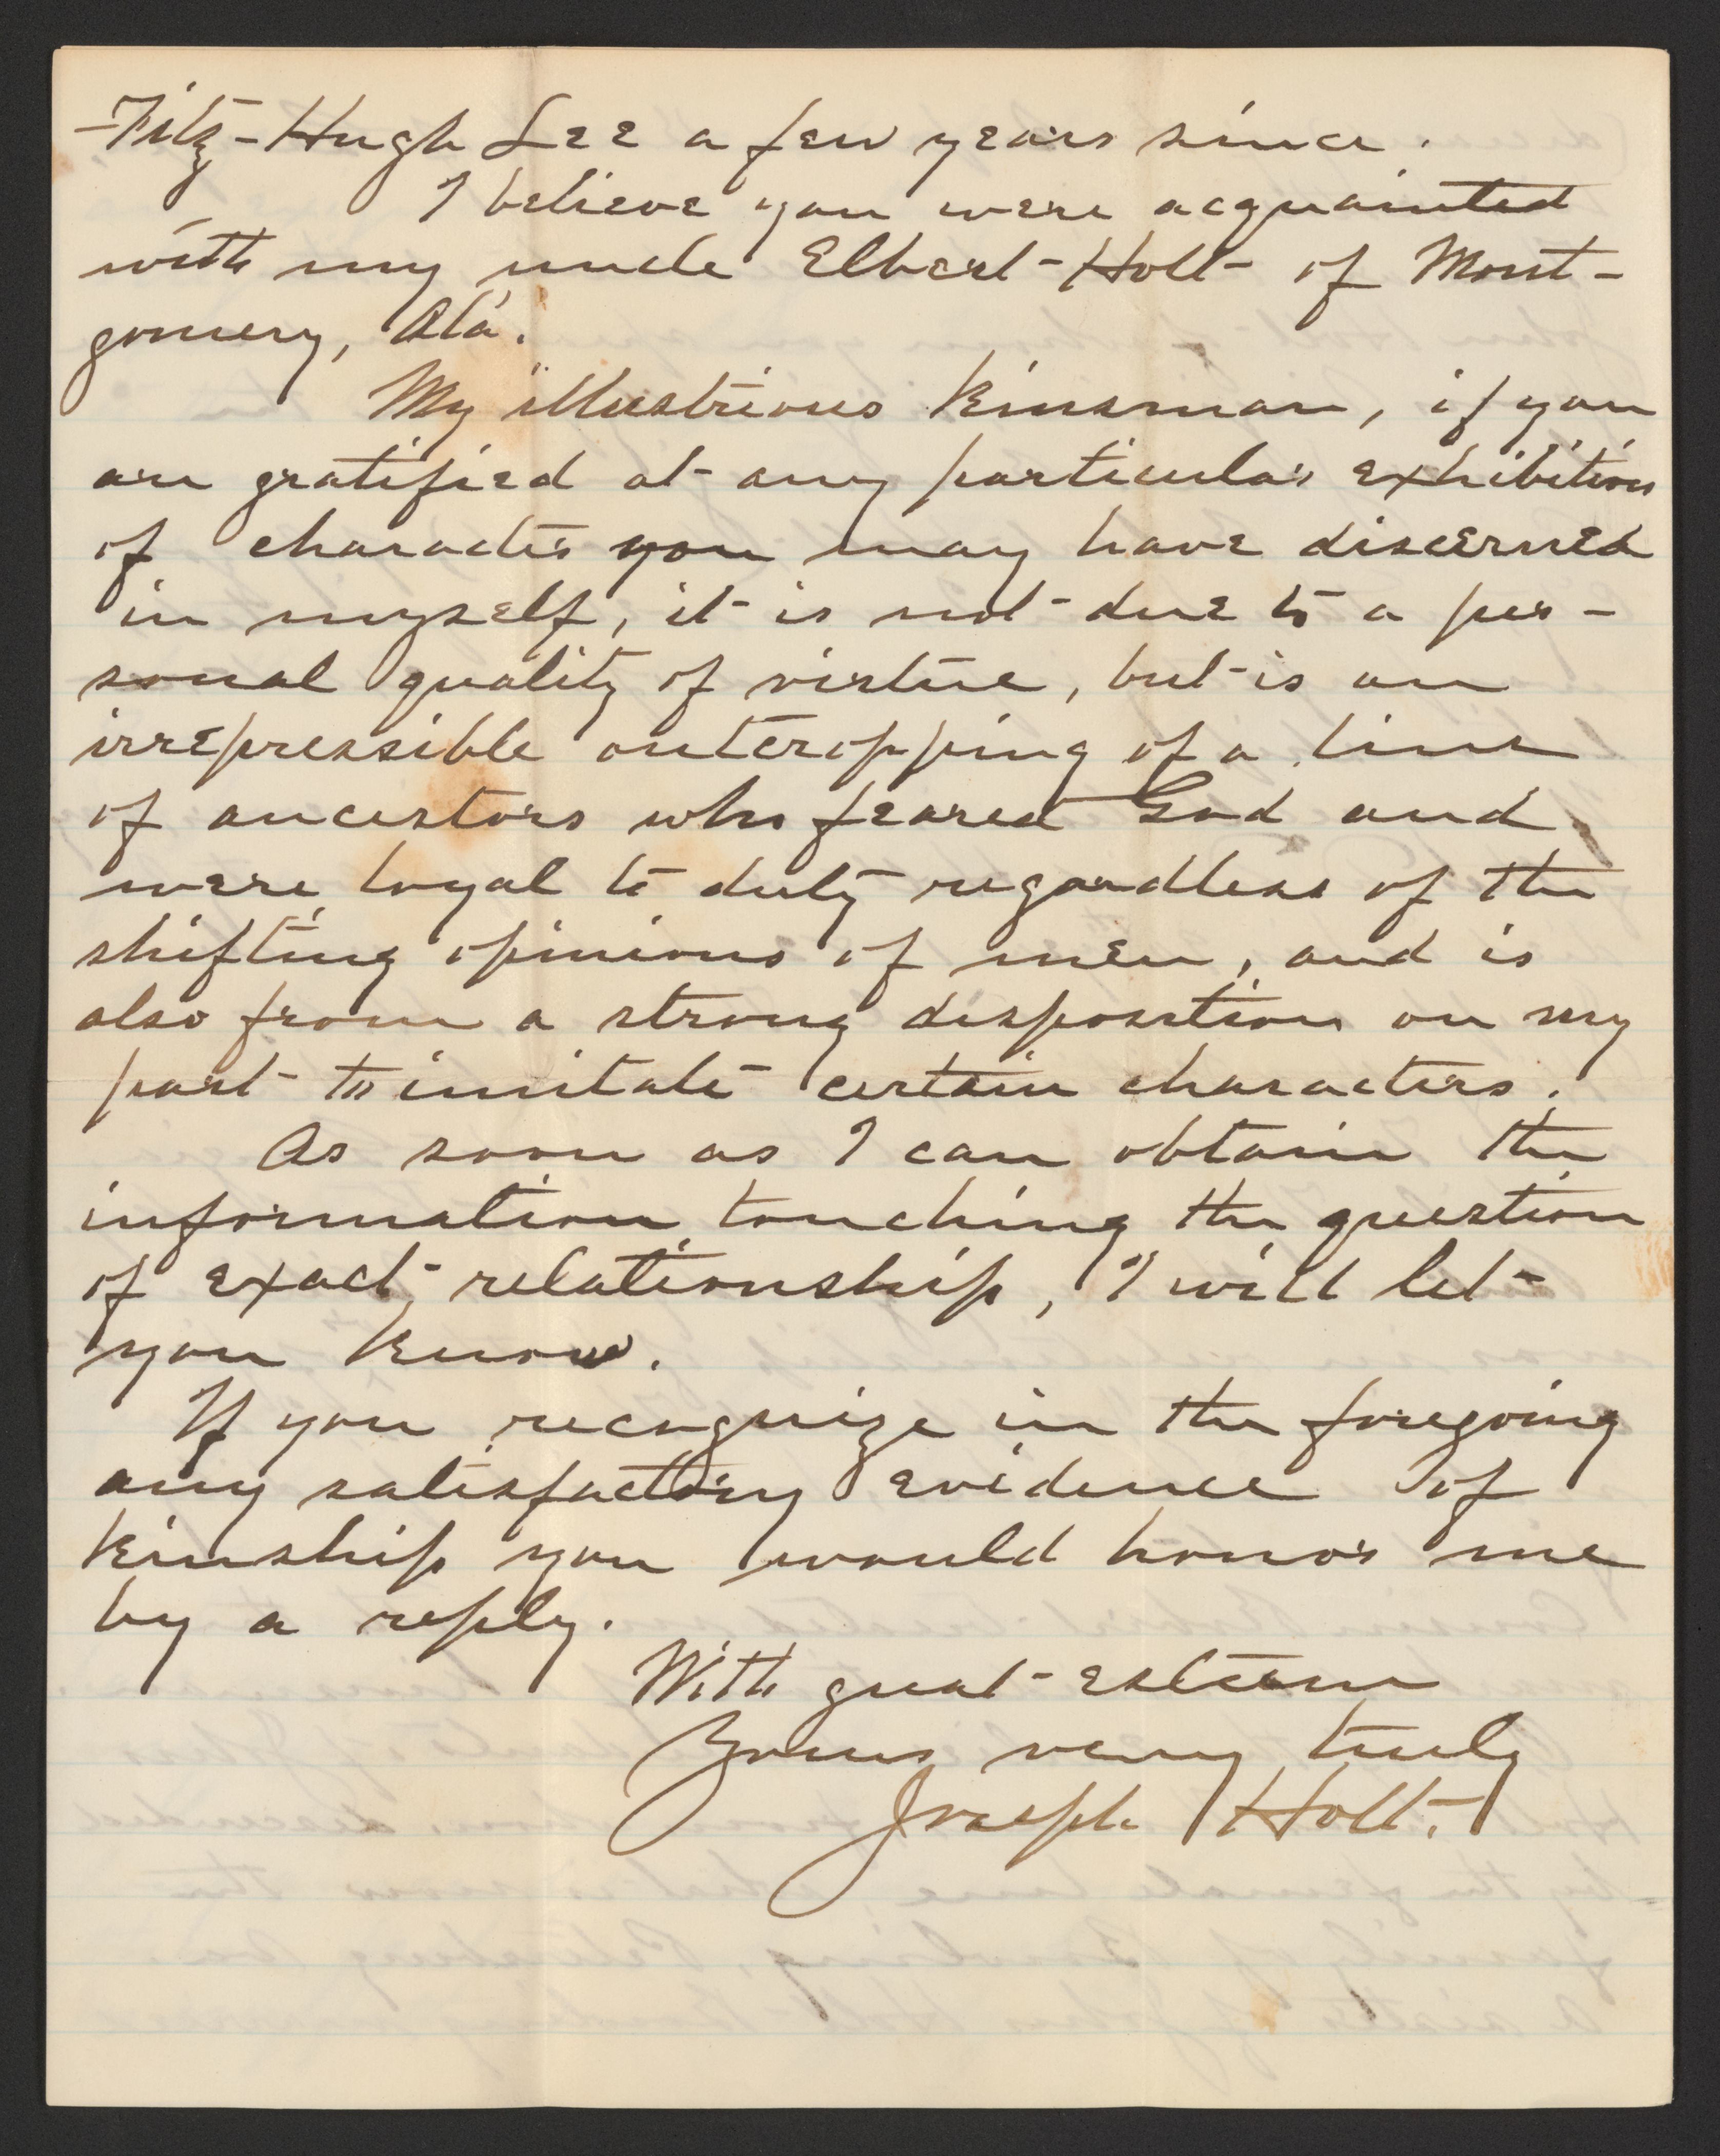 -Fitz-Hugh Lee a few years since.
I believe you were acquainted
with my uncle Elbert Holt of Mont-
gomery, Ala.
My illustrious Kinsman, if you
are gratified at any particular exhibition
of character you may have discerned
in myself, it is not due to a per-
sonal quality of virtue, but is an
irrepressible outcropping of a line
of ancestors who feared God and
were loyal to duty regardless of the
shifting opinions of men, and is
also from a strong disposition on my
part to imitate certain characters.
As soon as I can obtain the
information touching the question
of exact relationship, I will let
you know.
If you recognize in the foregoing
any satisfactory evidence of
Kinship you would honor me
by a reply.
With great esteem
Yours very truly
Joseph Holt.